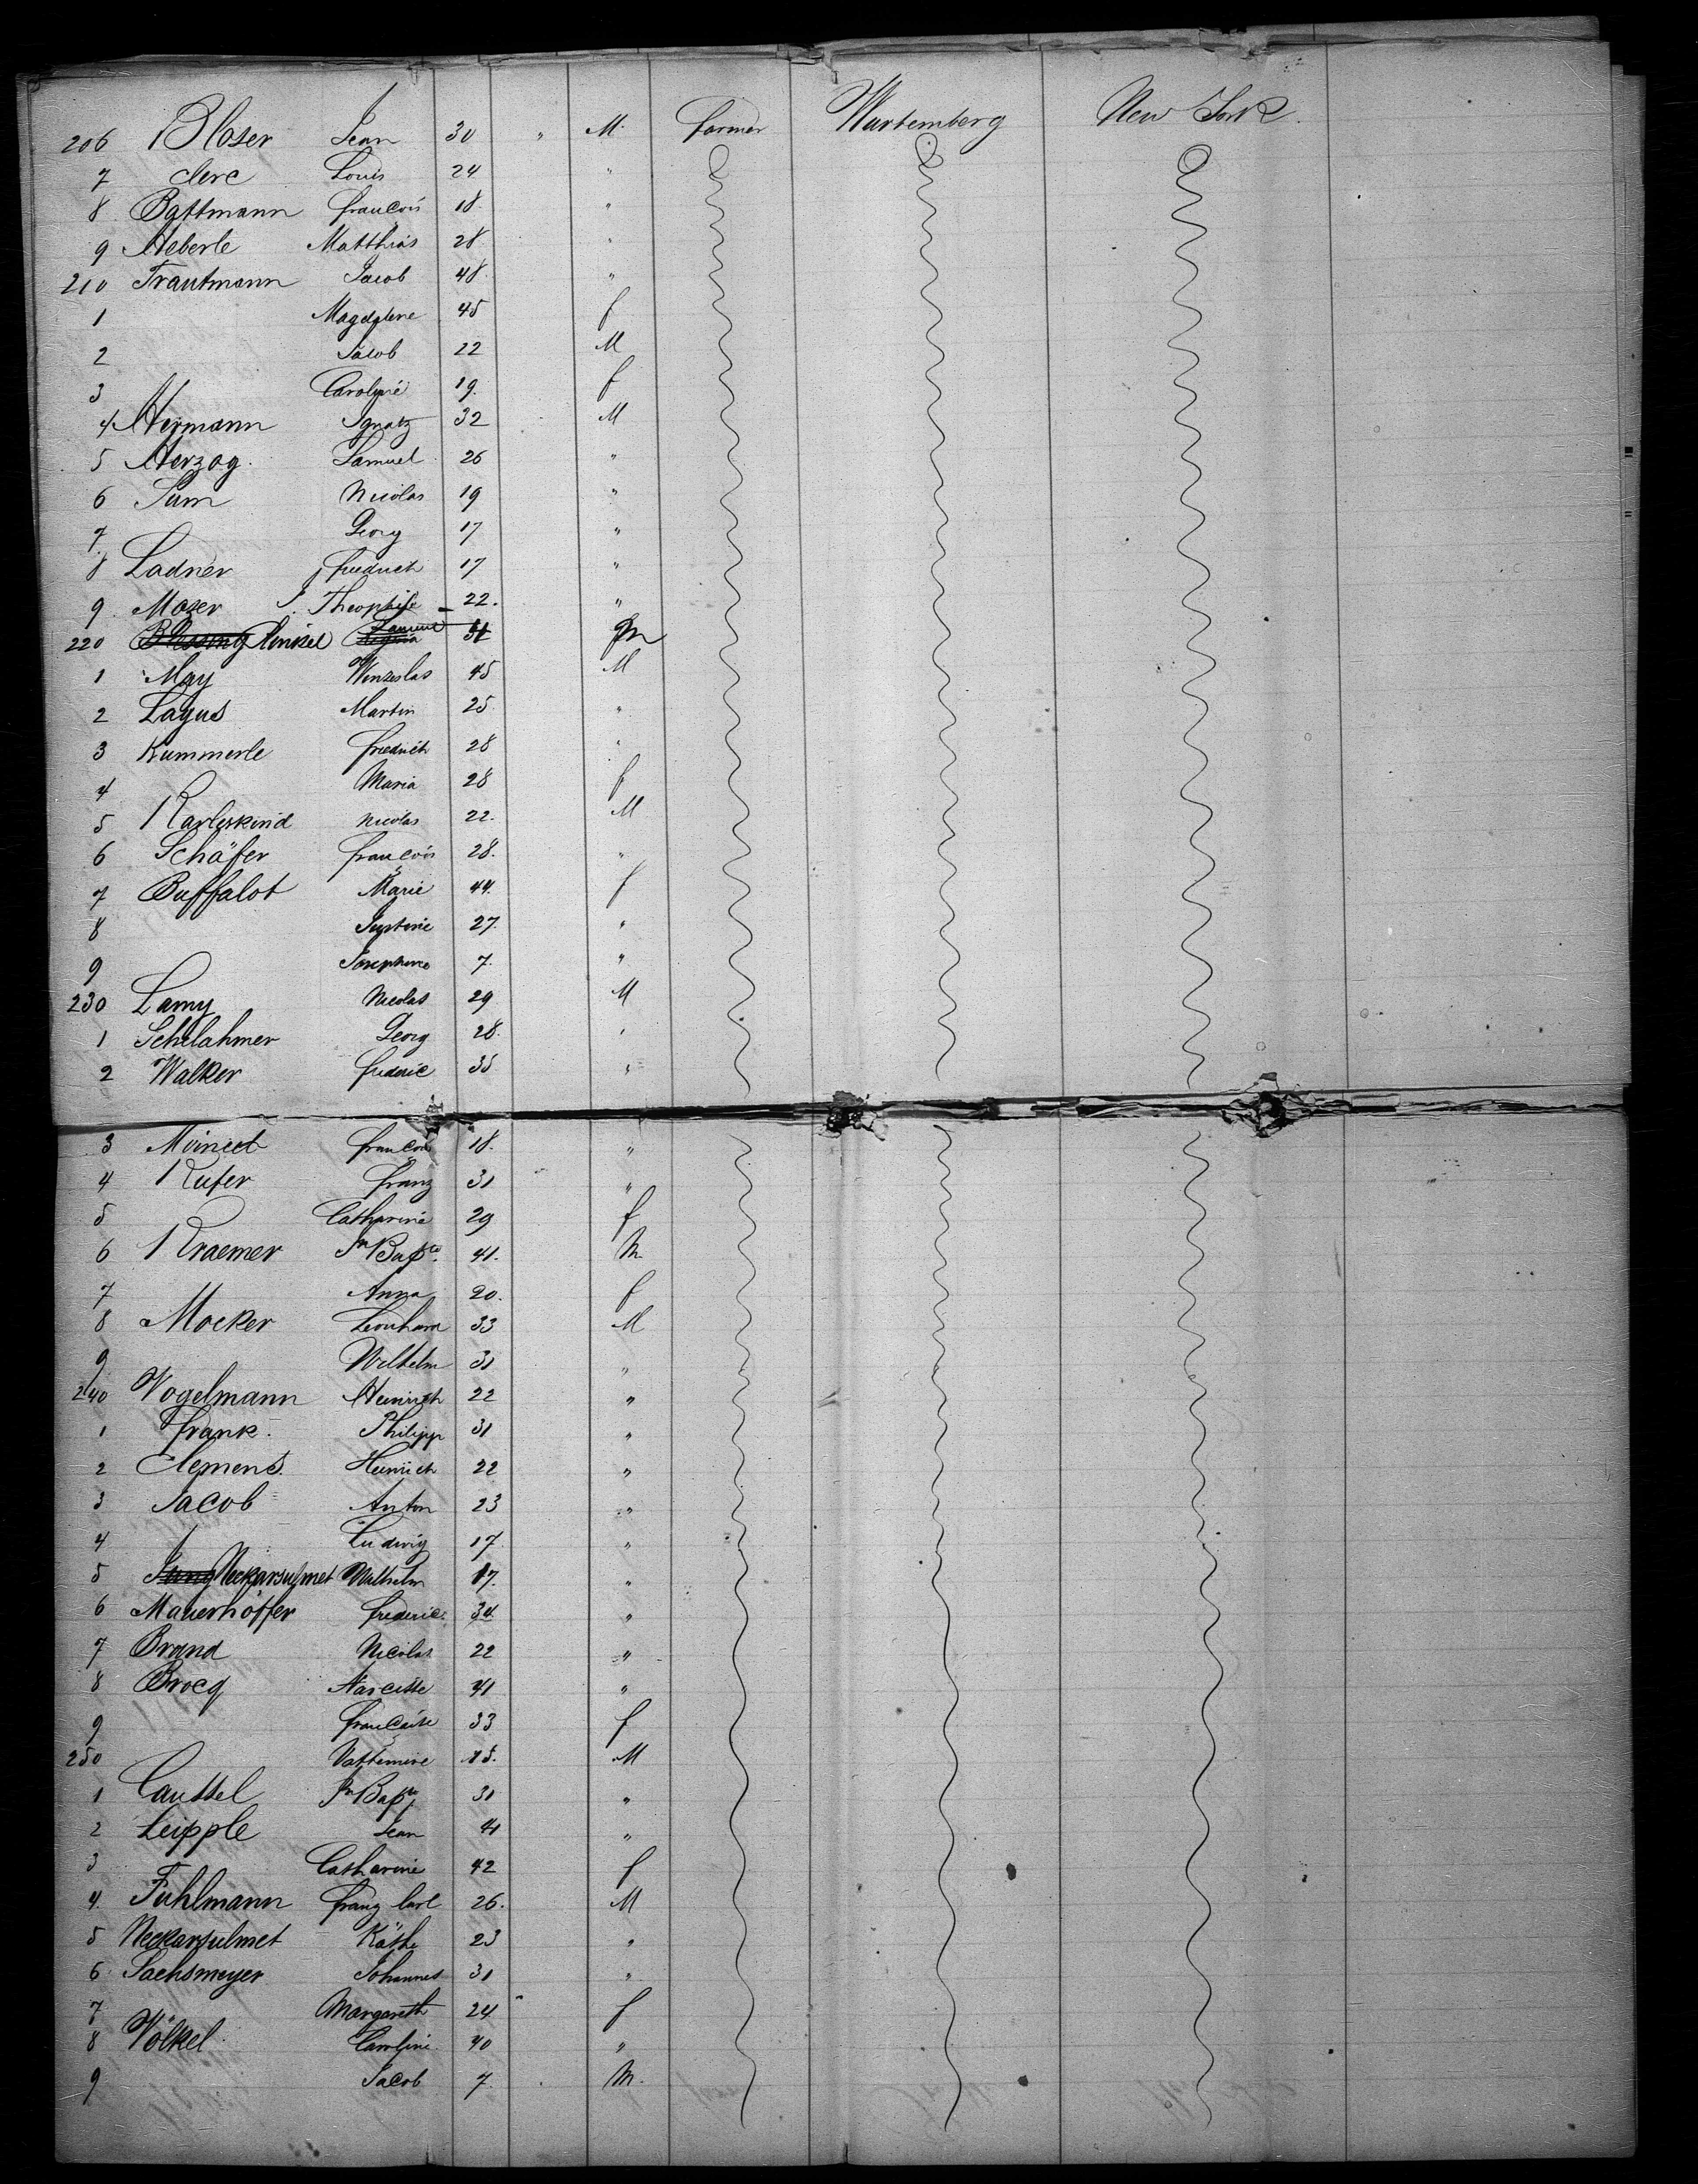 206 Bloser Jean 30 " M. farmer Wurtemberg New York.
7 Clerc Louis 24 "
8 Battmann françois 18 "
9 Heberle Matthias 28 "
210 Trautmann Jacob 48 "
1 Magdalene 45 f
2 Jacob 22 M
3 Caroline 19. f
4 Hermann Ignatz 32 M
5 Herzog. Samuel 26 "
6 Sum Nicolas 19 "
7. Georg 17 "
8 Ladner friedrich 17 "
9. Mozer J. Theophile 22. "
220 Blessing Laurent 31 m
1 May Winzeslas 45 M
2 Layus Martin 25 "
3 Kummerle friedrich 28 "
4 Maria 28 f
5 Karleskind Nicolas 22. M
6 Schäfer françois 28. "
7 Buffalot Marie 44. f
8 Justine 27. "
9 Josephine 7. "
230 Lamy Nicolas 29 M
1 Schlahmer Georg 28. "
2 Walker frederic 35 "
3 françois 18. "
4 Kufer franz 31 "
5 Catharine 29 f
6 Kraemer Jn Bapte 41. M
7 Anna 20. f
8 Mocker Leonhard 33 M
9 Wilhelm 31 "
240 Vogelmann Heinrich 22 "
1 frank. Philipp 31 "
2 Clemens. Heinrich 22 "
3 Jacob Anton 23 "
4 Ludwig 17 "
5 Jung Neckarsulmet Wilhelm 17. "
6 Mauerhöffer frederic 34. "
7 Brand Nicolas 22 "
8 Brocq Narcisse 41 "
9 françoise 33 f
250 M
1 Caussel Jn Bapte 31 "
2 Leipple Jean 41 "
3 Catharine 42 f
4. Fuhlmann franz Carl 26. M
5 Neckarsulmet Käthe 23 "
6 Sachsmeyer Johannes 31 "
7 Margareth 24 f
8 Völkel Caroline 40 "
9 Jacob 7. M.